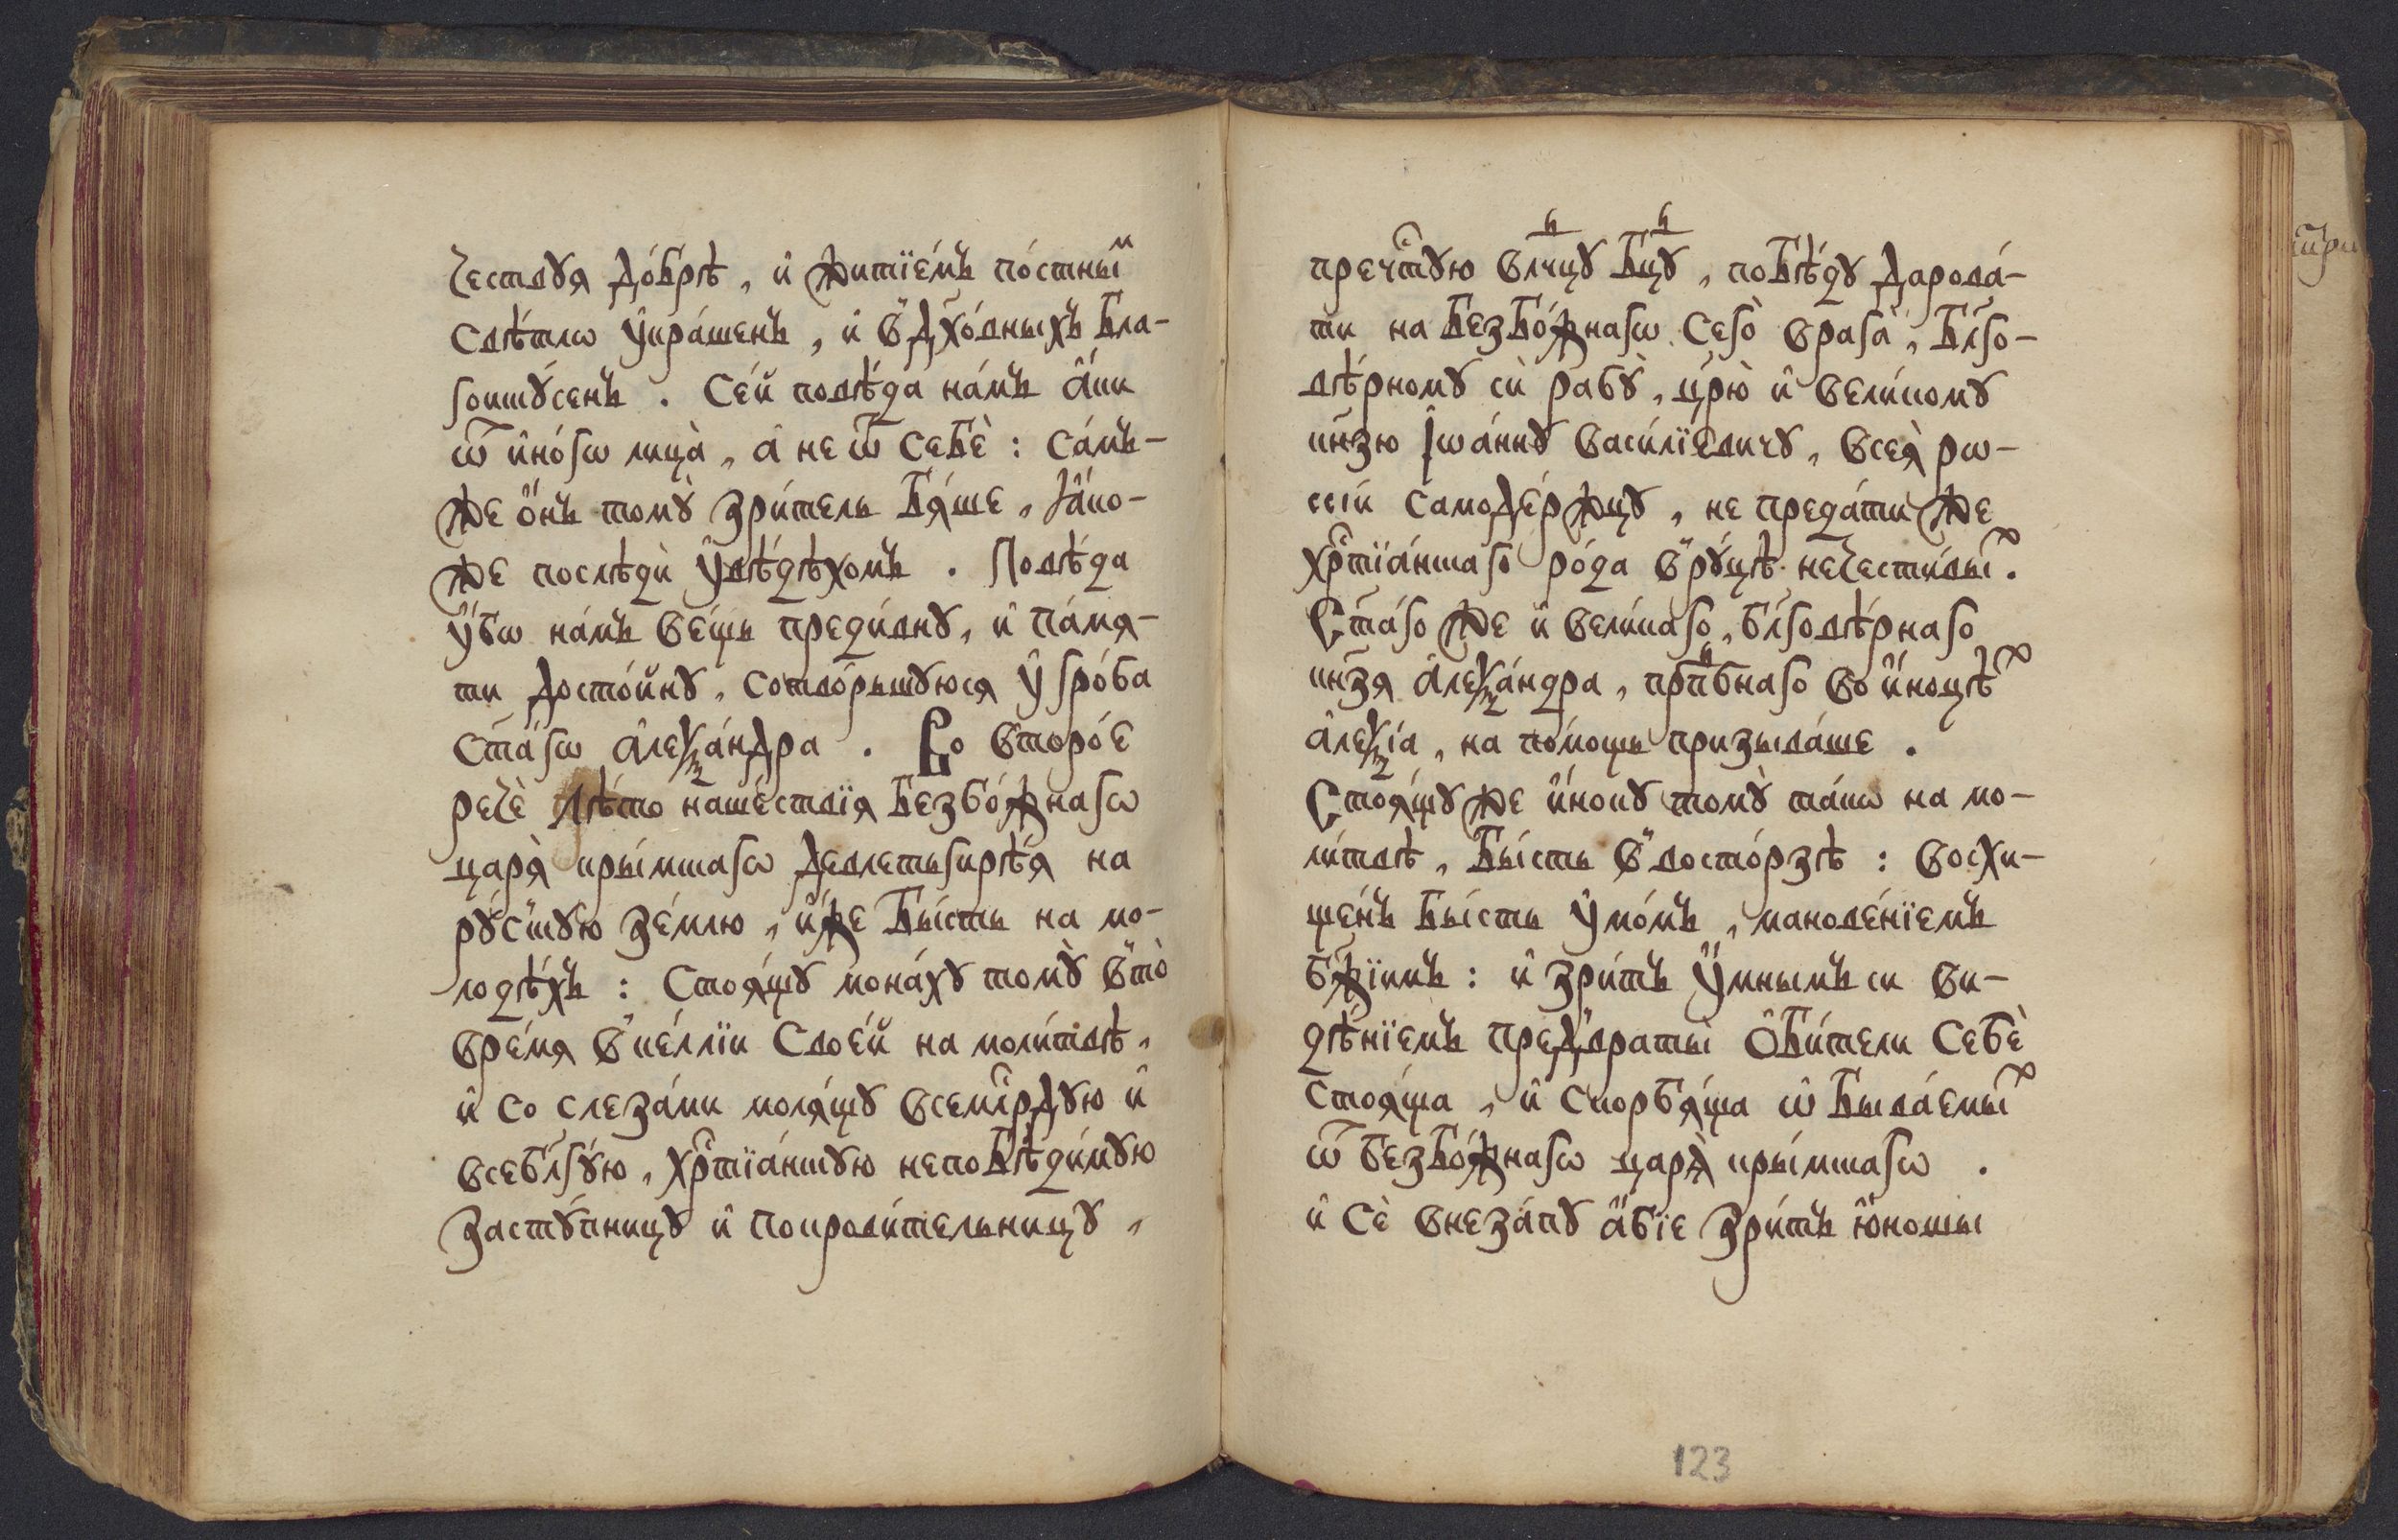 чествꙋя до́брѣ, и҆ житїе́мъ по́стныⷨ
свѣ́тлѡ ᲂу҆кра́шенъ, и҆ в дх҃о́вныхъ бла-
гоискꙋ́сенъ. Се́й повѣ́да на́мъ а҆́ки
ѿ и҆но́гѡ лица̀, а҆ не ѿ себѐ: са́мъ-
же ѻ҆́нъ томꙋ̀ зри́тель бѧ́ше, ꙗ҆́ко-
же послѣдѝ ᲂу҆вѣ́дѣхомъ. Повѣ́да
ᲂу҆́бѡ на́мъ ве́щь преди́внꙋ, и҆ па́мя-
ти досто́йнꙋ, сотво́рьшꙋюся ᲂу҆ гро́ба
ст҃а́гѡ а҆леѯа́ндра. Во второ́е
речѐ лѣ́то наше́ствїя безбо́жнагѡ
царя̀ кры́мскагѡ девлетьгирѣ́я на
рꙋ́сскꙋю зе́млю, и҆́же бы́сть на мо-
лодѣ́хъ: стоя́щꙋ мона́хꙋ томꙋ̀ в то̀
вре́мя в ке́ллїи свое́й на моли́твѣ,
и҆ со слеза́ми моля́щꙋ всемл҇рдꙋю и҆
всебл҃гꙋ́ю, хрⷭ҇тїа́нскꙋю непобѣди́мꙋю
застꙋ́пницꙋ и҆ покрови́тельницꙋ,
пречⷭ҇тꙋю влⷣчцꙋ бцⷣꙋ, побѣ́дꙋ дарова́-
ти на безбо́жнагѡ сегѡ̀ врага̀, бл҃го-
вѣ́рномꙋ сѝ рабꙋ̀, цр҃ю̀ и҆ вели́комꙋ
кн҃зю і҆ѡа́ннꙋ васи́лїевичꙋ, всея̀ рѡ-
ссі́и самоде́ржцꙋ, не преда́ти же
хрⷭ҇тїа́нскаго ро́да в рꙋ́цѣ нечести́выⷯ.
Ст҃а́го же и҆ вели́каго, бл҃говѣ́рнаго
кн҃зя а҆леѯа́ндра, прпⷣбнаго во и҆́ноцѣⷯ
а҆леѯі́а, на по́мощь призыва́ше.
Стоя́щꙋ же и҆́нокꙋ томꙋ̀ та́кѡ на мо-
ли́твѣ, бы́сть в восто́рзѣ: восхи-
ще́нъ бы́сть ᲂу҆мо́мъ, манове́нїемъ
бж҃їимъ: и҆ зри́тъ ᲂу҆́мнымъ си ви-
дѣ́нїемъ пред враты̀ ѻ҆би́тели себѐ
стоя́ща, и҆ скорбя́ща ѡ҆ быва́емыⷯ
ѿ безбо́жнагѡ царя̀ кры́мскагѡ.
и҆ сѐ внеза́пꙋ а҆́бїе зри́тъ ю҆́ношы
123